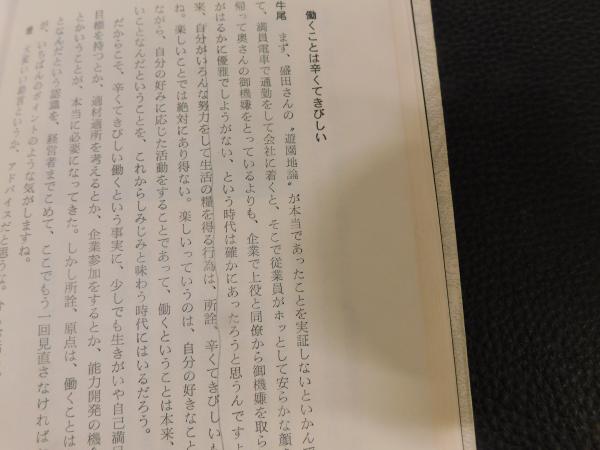 働くことは辛くてきびしい
牛尾　まず、盛田さんの〝遊園地論〟が本当であったことを実証しないといかん
て、満員電車で通勤をして会社に着くと、そこで従業員がホッとして安らかな顔
帰って奥さんの御機嫌をとっているよりも、企業で上役と同僚から御機嫌を取ら
がはるかに優雅でしようがない、という時代は確かにあったろうと思うんですよ
来、自分がいろんな努力をして生活の糧を得る行為は、所詮、辛くてきびしいも
ね。楽しいことでは絶対にあり得ない。楽しいっていうのは、自分の好きなこと
ながら、自分の好みに応じた活動をすることであって、働くということは本来、
いことなんだということを、これからしみじみと味わう時代にはいるだろう。
だからこそ、辛くてきびしい働くという事実に、少しでも生きがいや自己満足
目標を持つとか、適材適所を考えるとか、企業参加をするとか、能力開発の機
とかいうことが、本当に必要になってきた。しかし所詮、原点は、働くことは
となんだという認識を、経営者までこめて、ここでもう一回見直さなければ
が、いちばんのポイントのような気がしますね。
大変いい助言というか、アドバイスだと思うな。